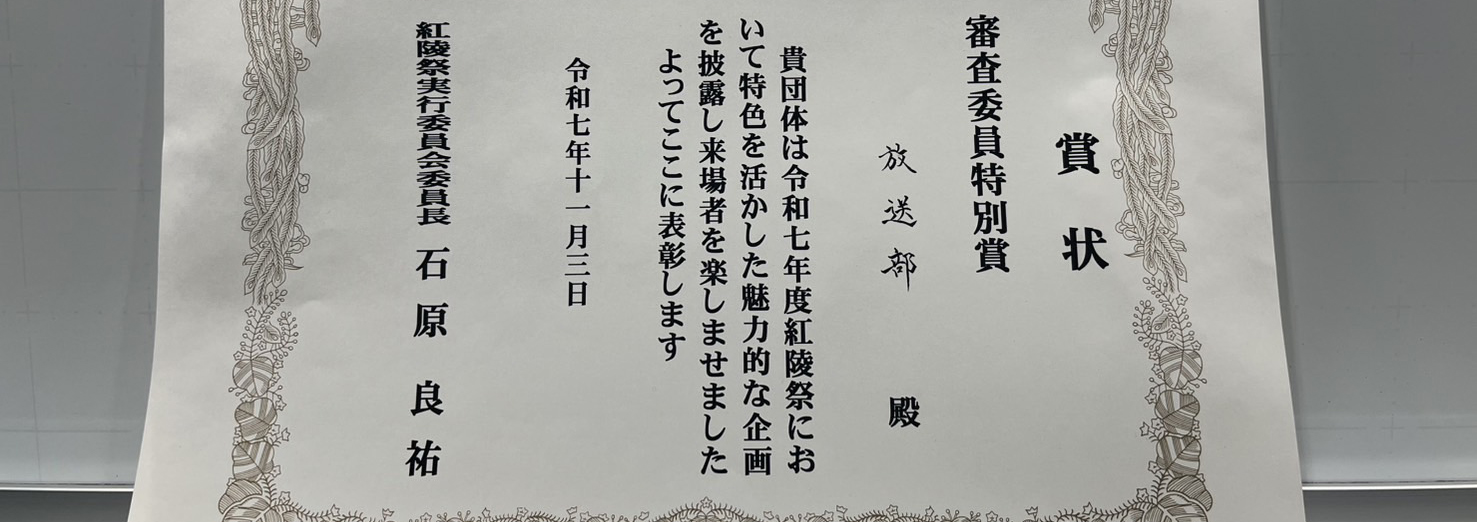 賞状
審査委員特別賞
放送部 殿
貴団体は令和七年度紅陵祭にお
いて特色を活かした魅力的な企画
を披露し来場者を楽しませました
よってここに表彰します
令和七年十一月三日
紅陵祭実行委員会委員長 石原 良祐